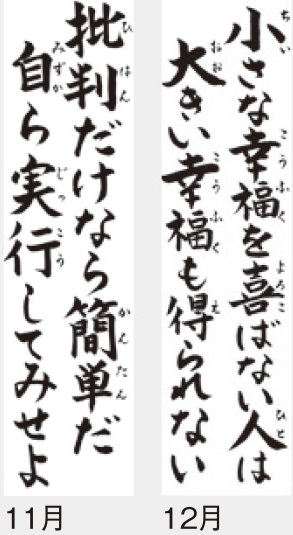 小さな幸福を喜ばない人は
大きい幸福も得られない
12月
批判だけなら簡単だ
自ら実行してみせよ
11月